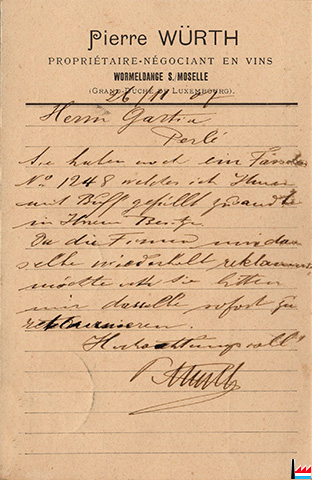 Pierre WÜRTH
PROPRIÉTAIRE-NÉGOCIANT EN VINS
WORMELDANGE S/MOSELLE
(GRAND-DUCHÉ DE LUXEMBOURG).
26/11 07
Herrn
Perlé
Sie haben noch ein
No 1248 welches ich Ihnen
mit gefüllt gesandt
in Ihrem Besitze
Da die Firma
selbe wiederholt
möchte ich Sie bitten
mir dasselbe sofort zu
retourniren.
Hochachtungsvoll